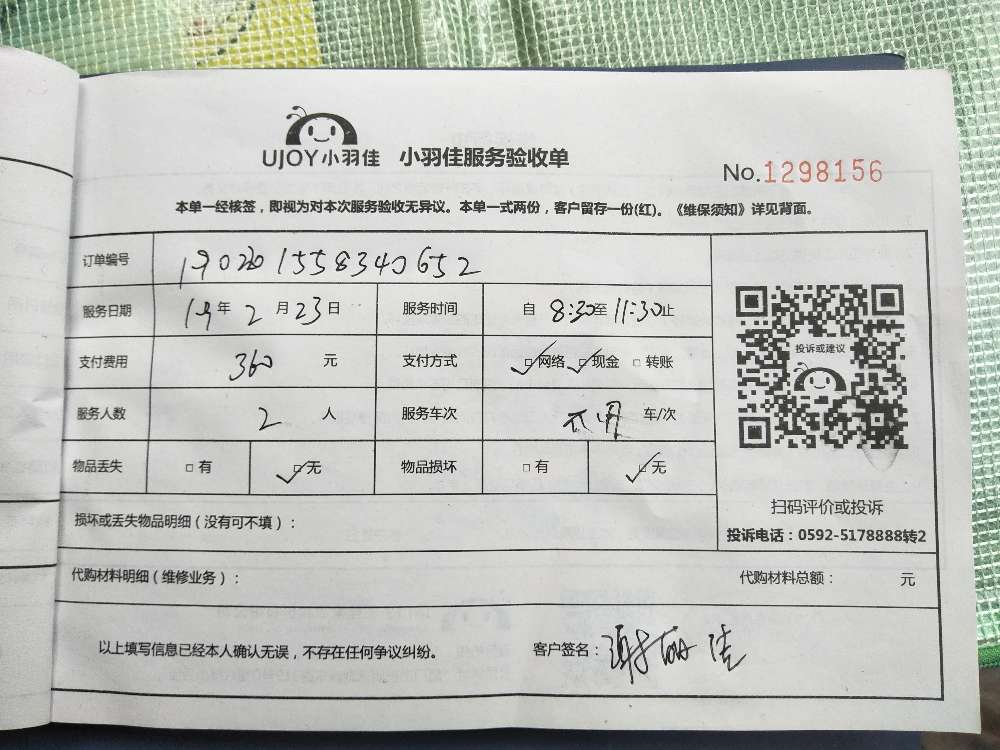 UJOY小羽佳 小羽佳服务验收单
No.1298156
本单一经核签，即视为对本次服务验收无异议。本单一式两份，客户留存一份(红)。《维保须知》详见背面。
订单编号 1902201558340652
服务日期 19年2月23日 服务时间 自8:30至11:30止
支付费用 360元 支付方式 网络 现金 转账
服务人数 2人 服务车次 不用 车/次
物品丢失 有 无 物品损坏 有 无
投诉或建议
扫码评价或投诉
投诉电话：0592-5178888转2
损坏或丢失物品明细（没有可不填）：
代购材料明细（维修业务）： 代购材料总额： 元
以上填写信息已经本人确认无误，不存在任何争议纠纷。 客户签名：谢